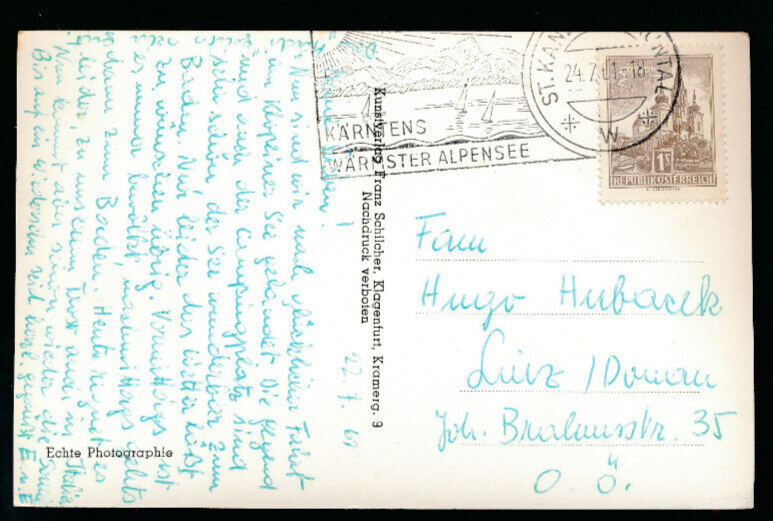 KÄRNTENS
WÄRMSTER ALPENSEE
ST. KAN
24.7.61-18
W
1S
REPUBLIK ÖSTERREICH
Fam
Hugo Hubacek
Linz / Donau
Joh. 35
O. Ö.
Kunstverlag Franz Schilcher, Klagenfurt, Kramerg. 9
Nachdruck verboten
22. 7. 61
Nun sind wir nach Fahrt
am Klopeiner See gelandet. Die Gegend
und auch der Campingplatz sind
sehr schön, der See wunderbar zum
Baden. Nur leider das Wetter läßt
zu wünschen übrig. Vormittags ist
es immer bewölkt, nachmittags gehts
zum Baden. Heute regnet es
leider, zu unserem Trost auch in Italien
Nun kommt aber schon wieder die
Bis auf ein seid herzl. gegrüßt E. u. E
Echte Photographie